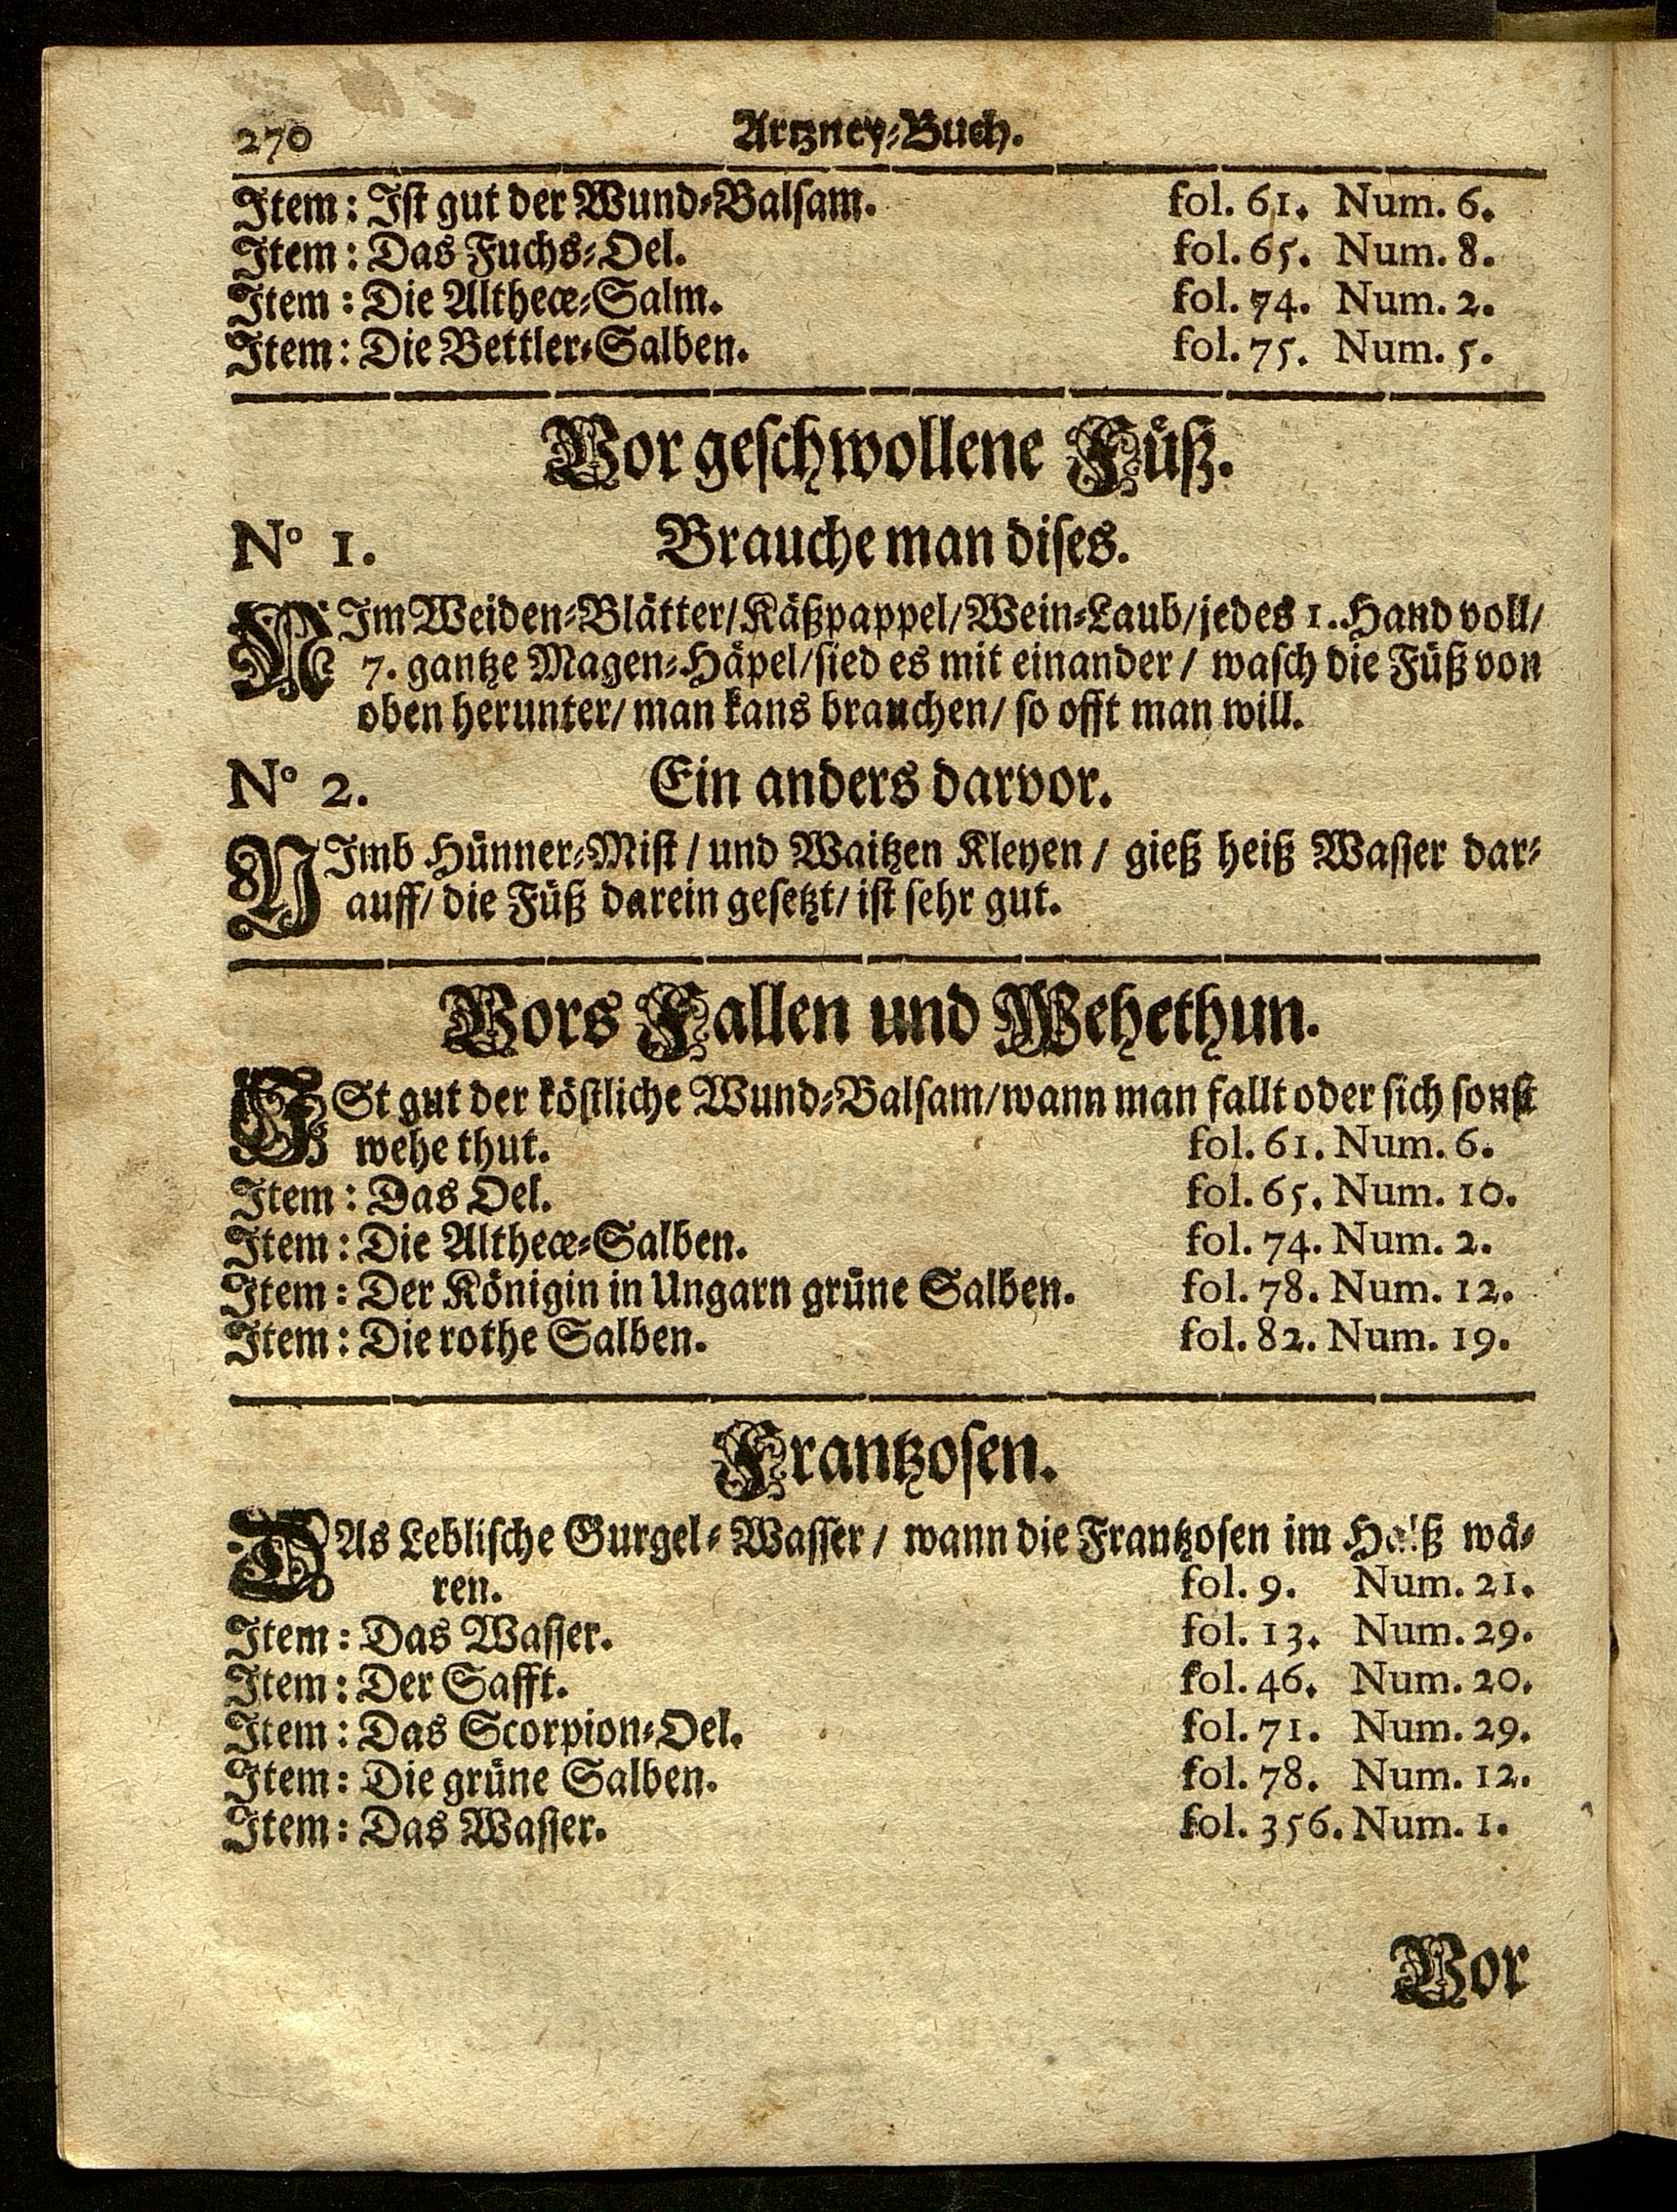 270 Artzney-Buch.
Item: Ist gut der Wund-Balsam. fol. 61. Num. 6.
Item: Das Fuchs-Oel. fol. 65. Num. 8.
Item: Die Altheæ-Salm. fol. 74. Num. 2.
Item: Die Bettler-Salben. fol. 75. Num. 5.
Vor geschwollene Füß.
N° 1. Brauche man dises.
NIm Weiden-Blätter/Käßpappel/Wein-Laub/jedes 1. Hand voll/
7. gantze Magen-Häpel/sied es mit einander / wasch die Füß von
oben herunter/ man kans brauchen/ so offt man will.
N° 2. Ein anders darvor.
NImb Hünner-Mist / und Waitzen Kleyen / gieß heiß Wasser dar-
auff/ die Füß darein gesetzt/ ist sehr gut.
Vors Fallen und Wehethun.
ESt gut der köstliche Wund-Balsam/wann man fallt oder sich sonst
wehe thut. fol. 61. Num. 6.
Item: Das Oel. fol. 65. Num. 10.
Item: Die Altheæ-Salben. fol. 74. Num. 2.
Item: Der Königin in Ungarn grüne Salben. fol. 78. Num. 12.
Item: Die rothe Salben. fol. 82. Num. 19.
Frantzosen.
DAs Leblische Gurgel-Wasser / wann die Frantzosen im Halß wä-
ren. fol. 9. Num. 21.
Item: Das Wasser. fol. 13. Num. 29.
Item: Der Safft. fol. 46. Num. 20.
Item: Das Scorpion-Oel. fol. 71. Num. 29.
Item: Die grüne Salben. fol. 78. Num. 12.
Item: Das Wasser. fol. 356. Num. 1.
Vor